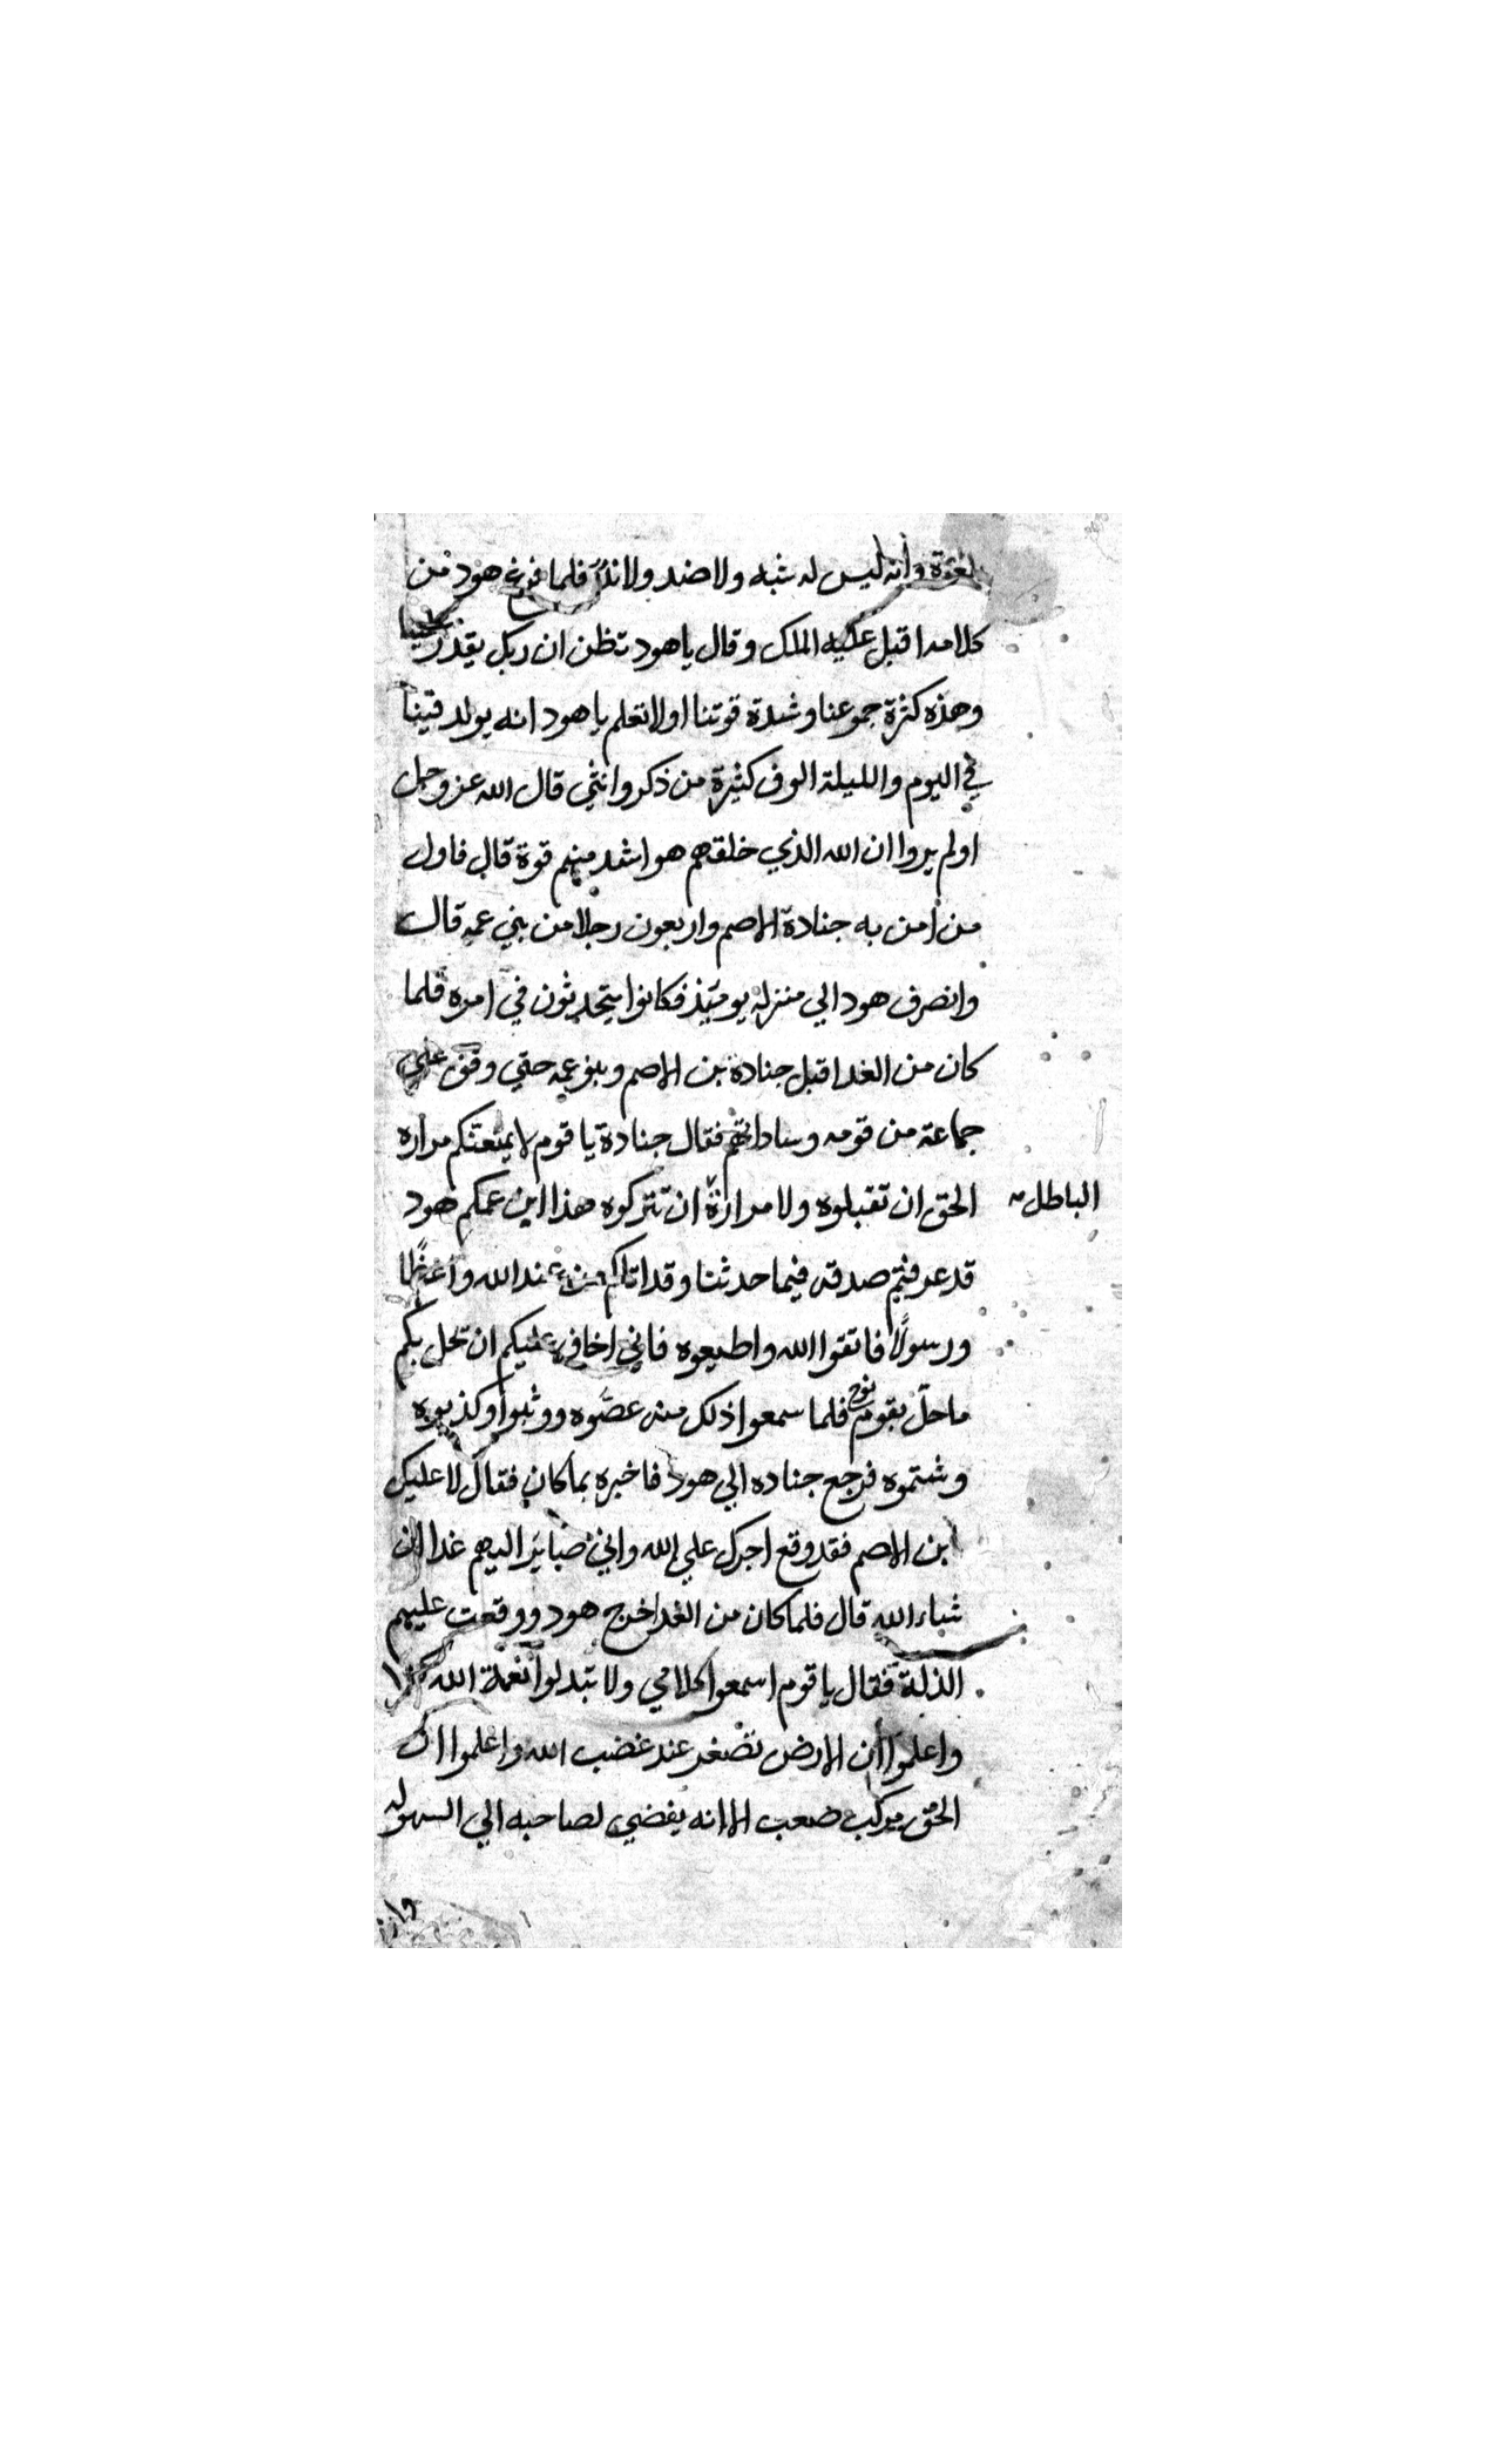 وانه ليس له شبه ولا ضد ولا ند فلما فرغ هود من
كلامه اقبل عليه الملك وقال ياهود تظن ان ربك يقدر علينا
وهذه كثرة جموعنا وشدة قوتنا اولا تعلم ياهود انه يولد فينا
في اليوم والليلة الوف كثيرة من ذكر وانثي قال الله عز وجل
اولم يروا ان الله الذي خلقهم هو اشد منهم قوة قال فاول
من امن به جنادة الاصم واربعون رجلا من بني عمه قال
وانصرف هود الي منزله يومئذ فكانوا يتحدثون في امره فلما
كان من الغد اقبل جنادة بن الاصم وبنوعمه حتي وقف علي
جماعة من قومه وساداتهم فقال جنادة يا قوم لا يمنعنكم مراره
الحق ان تقبلوه ولا مرارة ان تتركوه هذا ابن عمكم هود
الباطل
قد عرفتم صدقه فيما حدثنا وقد اتاكم من عند الله واعظا
ورسولا فاتقوا الله واطيعوه فاني اخاف عليكم ان تحل بكم
ماحل بقوم نوح فلما سمعوا ذلك منه عصوه ووثبوا وكذبوه
وشتموه فرجع جناده الي هود فاخبره بماكان فقال لا عليك
ابن الاصم فقد وقع اجرك علي الله واني صائر اليهم غدا ان
شاء الله قال فلما كان من الغد اخرج هود ووقعت عليهم
الذلة فقال يا قوم اسمعوا كلامي ولا تبدلوا نعمة الله كفرا
واعلموا ان الارض تصغر عند غضب الله واعلموا ان
الحق مركب صعب الا انه يفضي لصاحبه الي السهوله
وان